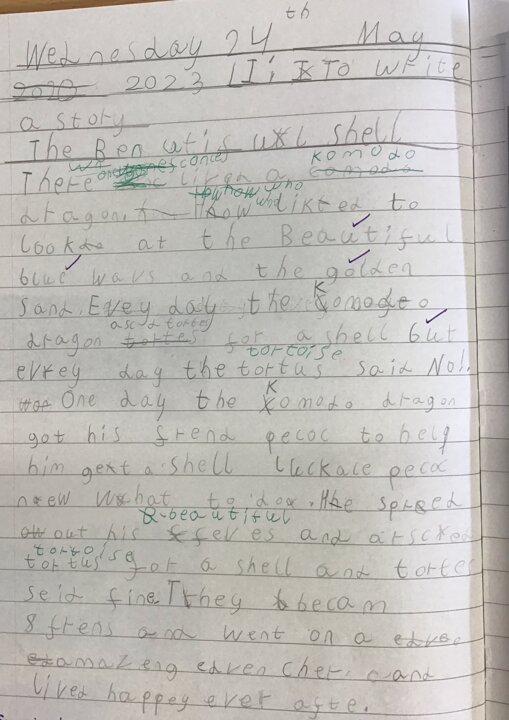 th
Wednesday 24 May
2020 2023 LI; To write
a story
The Beautiful shell
There once lived a komodo
dragon who likted to
Look at the Beautiful
blue wavs and the golden
sand. Evey day the Komodo
dragon asced tortes for a shell but
tortoise
evrey day the tortus said No!.
One day the Komodo dragon
got his frend pecoc to help
him get a shell luckale pecoc
new what to do. He spred
& beautiful
out his feves and arscked
tortoise
tortus for a shell and tortes
seid fine. They becam
frens and went on a
amazeng edvencher. and
lived happey ever afte.